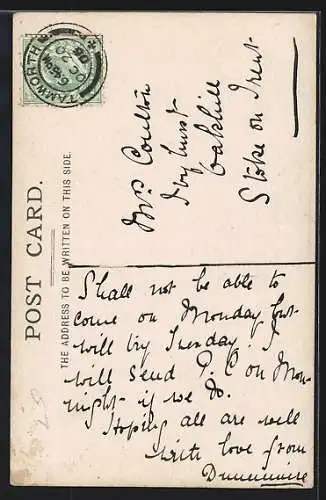 POST CARD.
THE ADDRESS TO BE WRITTEN ON THIS SIDE.
TAMWORTH
Mrs Coulton
Ivyhurst
Oakhill
Stoke on Trent
Shall not be able to
come on Monday but
will try Tuesday. I
will send P.C on Mon-
night if we do.
Hoping all are well
with love from